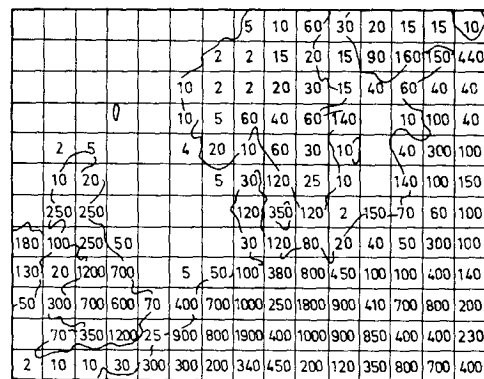 5 10 60 30 20 15 15 10
2 2 15 20 15 90 160 150 440
10 2 2 20 30 15 40 60 40 40
0 10 5 60 40 60 140 10 100 40
2 5 4 20 10 60 30 10 40 300 100
10 20 5 30 120 25 10 140 100 150
250 250 120 350 120 2 150 70 60 100
180 100 250 50 30 120 80 20 40 50 300 100
130 20 1200 700 5 50 100 380 800 450 100 100 400 140
50 300 700 600 70 400 700 1000 250 1800 900 410 700 800 200
70 350 1200 25 900 800 1900 400 1000 900 850 400 400 230
2 10 10 30 300 300 200 340 450 200 120 350 800 700 400